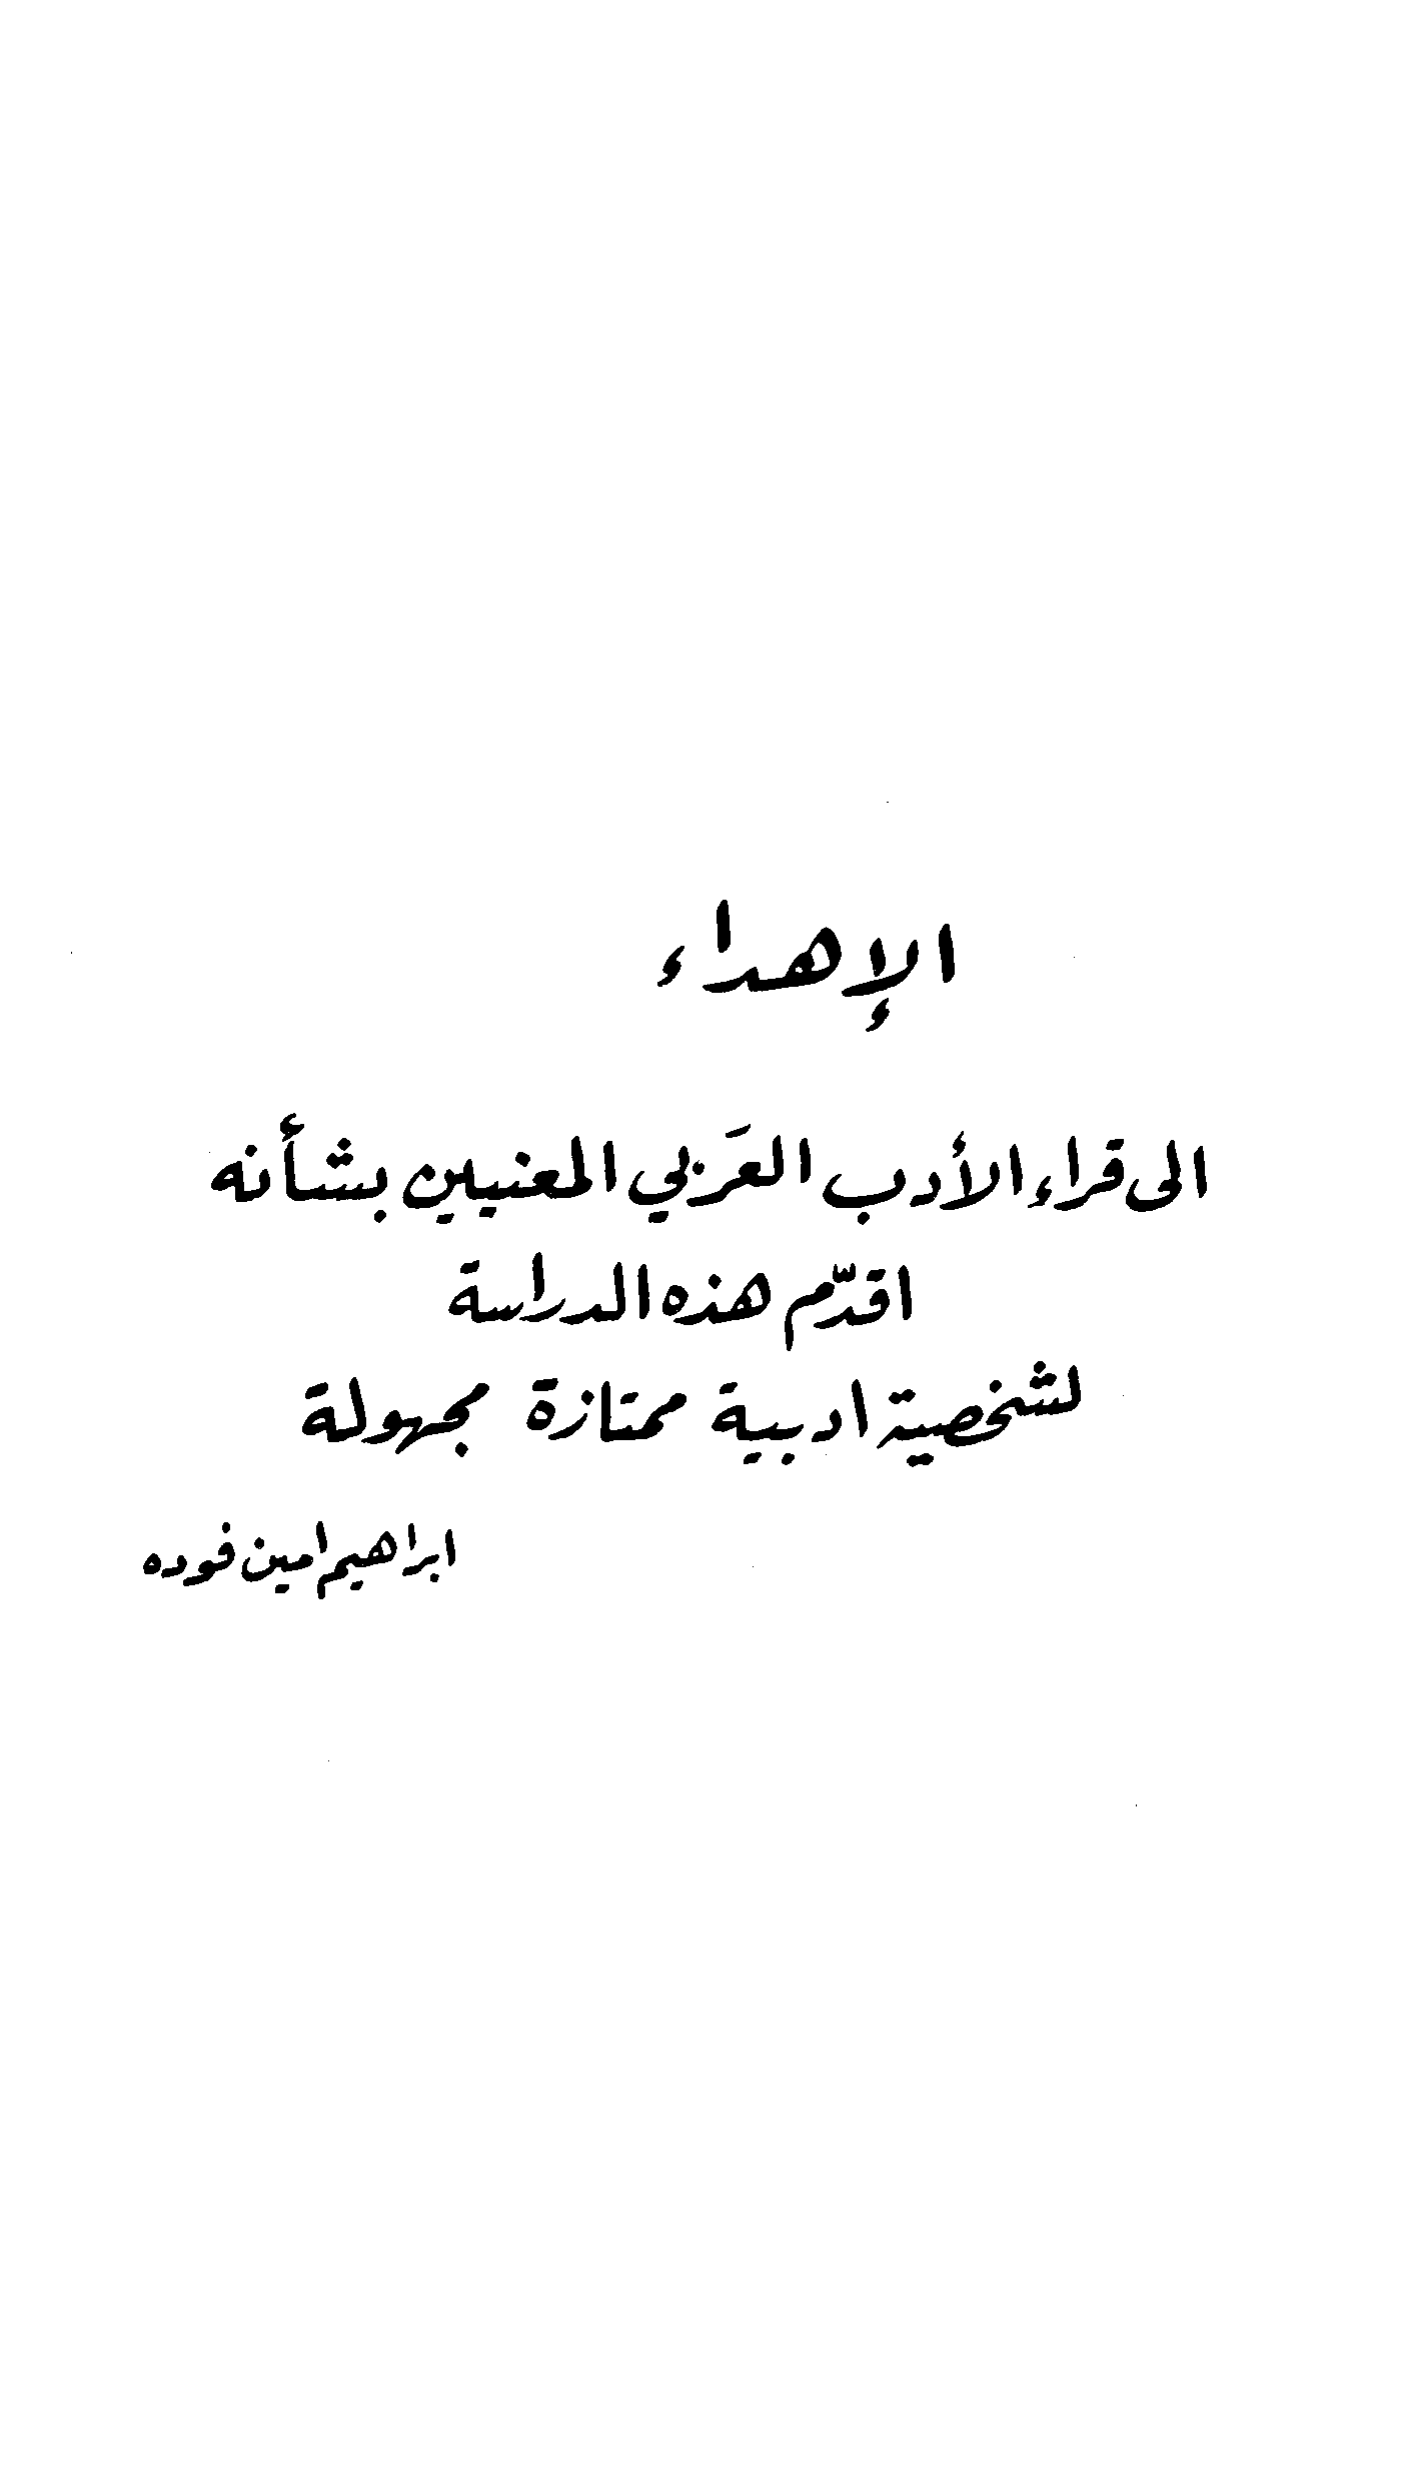 الإهداء
الى قراء الأدب العَربي المعنيين بشأنه
اقدّم هذه الدراسة
لشخصية ادبية ممتازة مجهولة
ابراهيم امين فوده